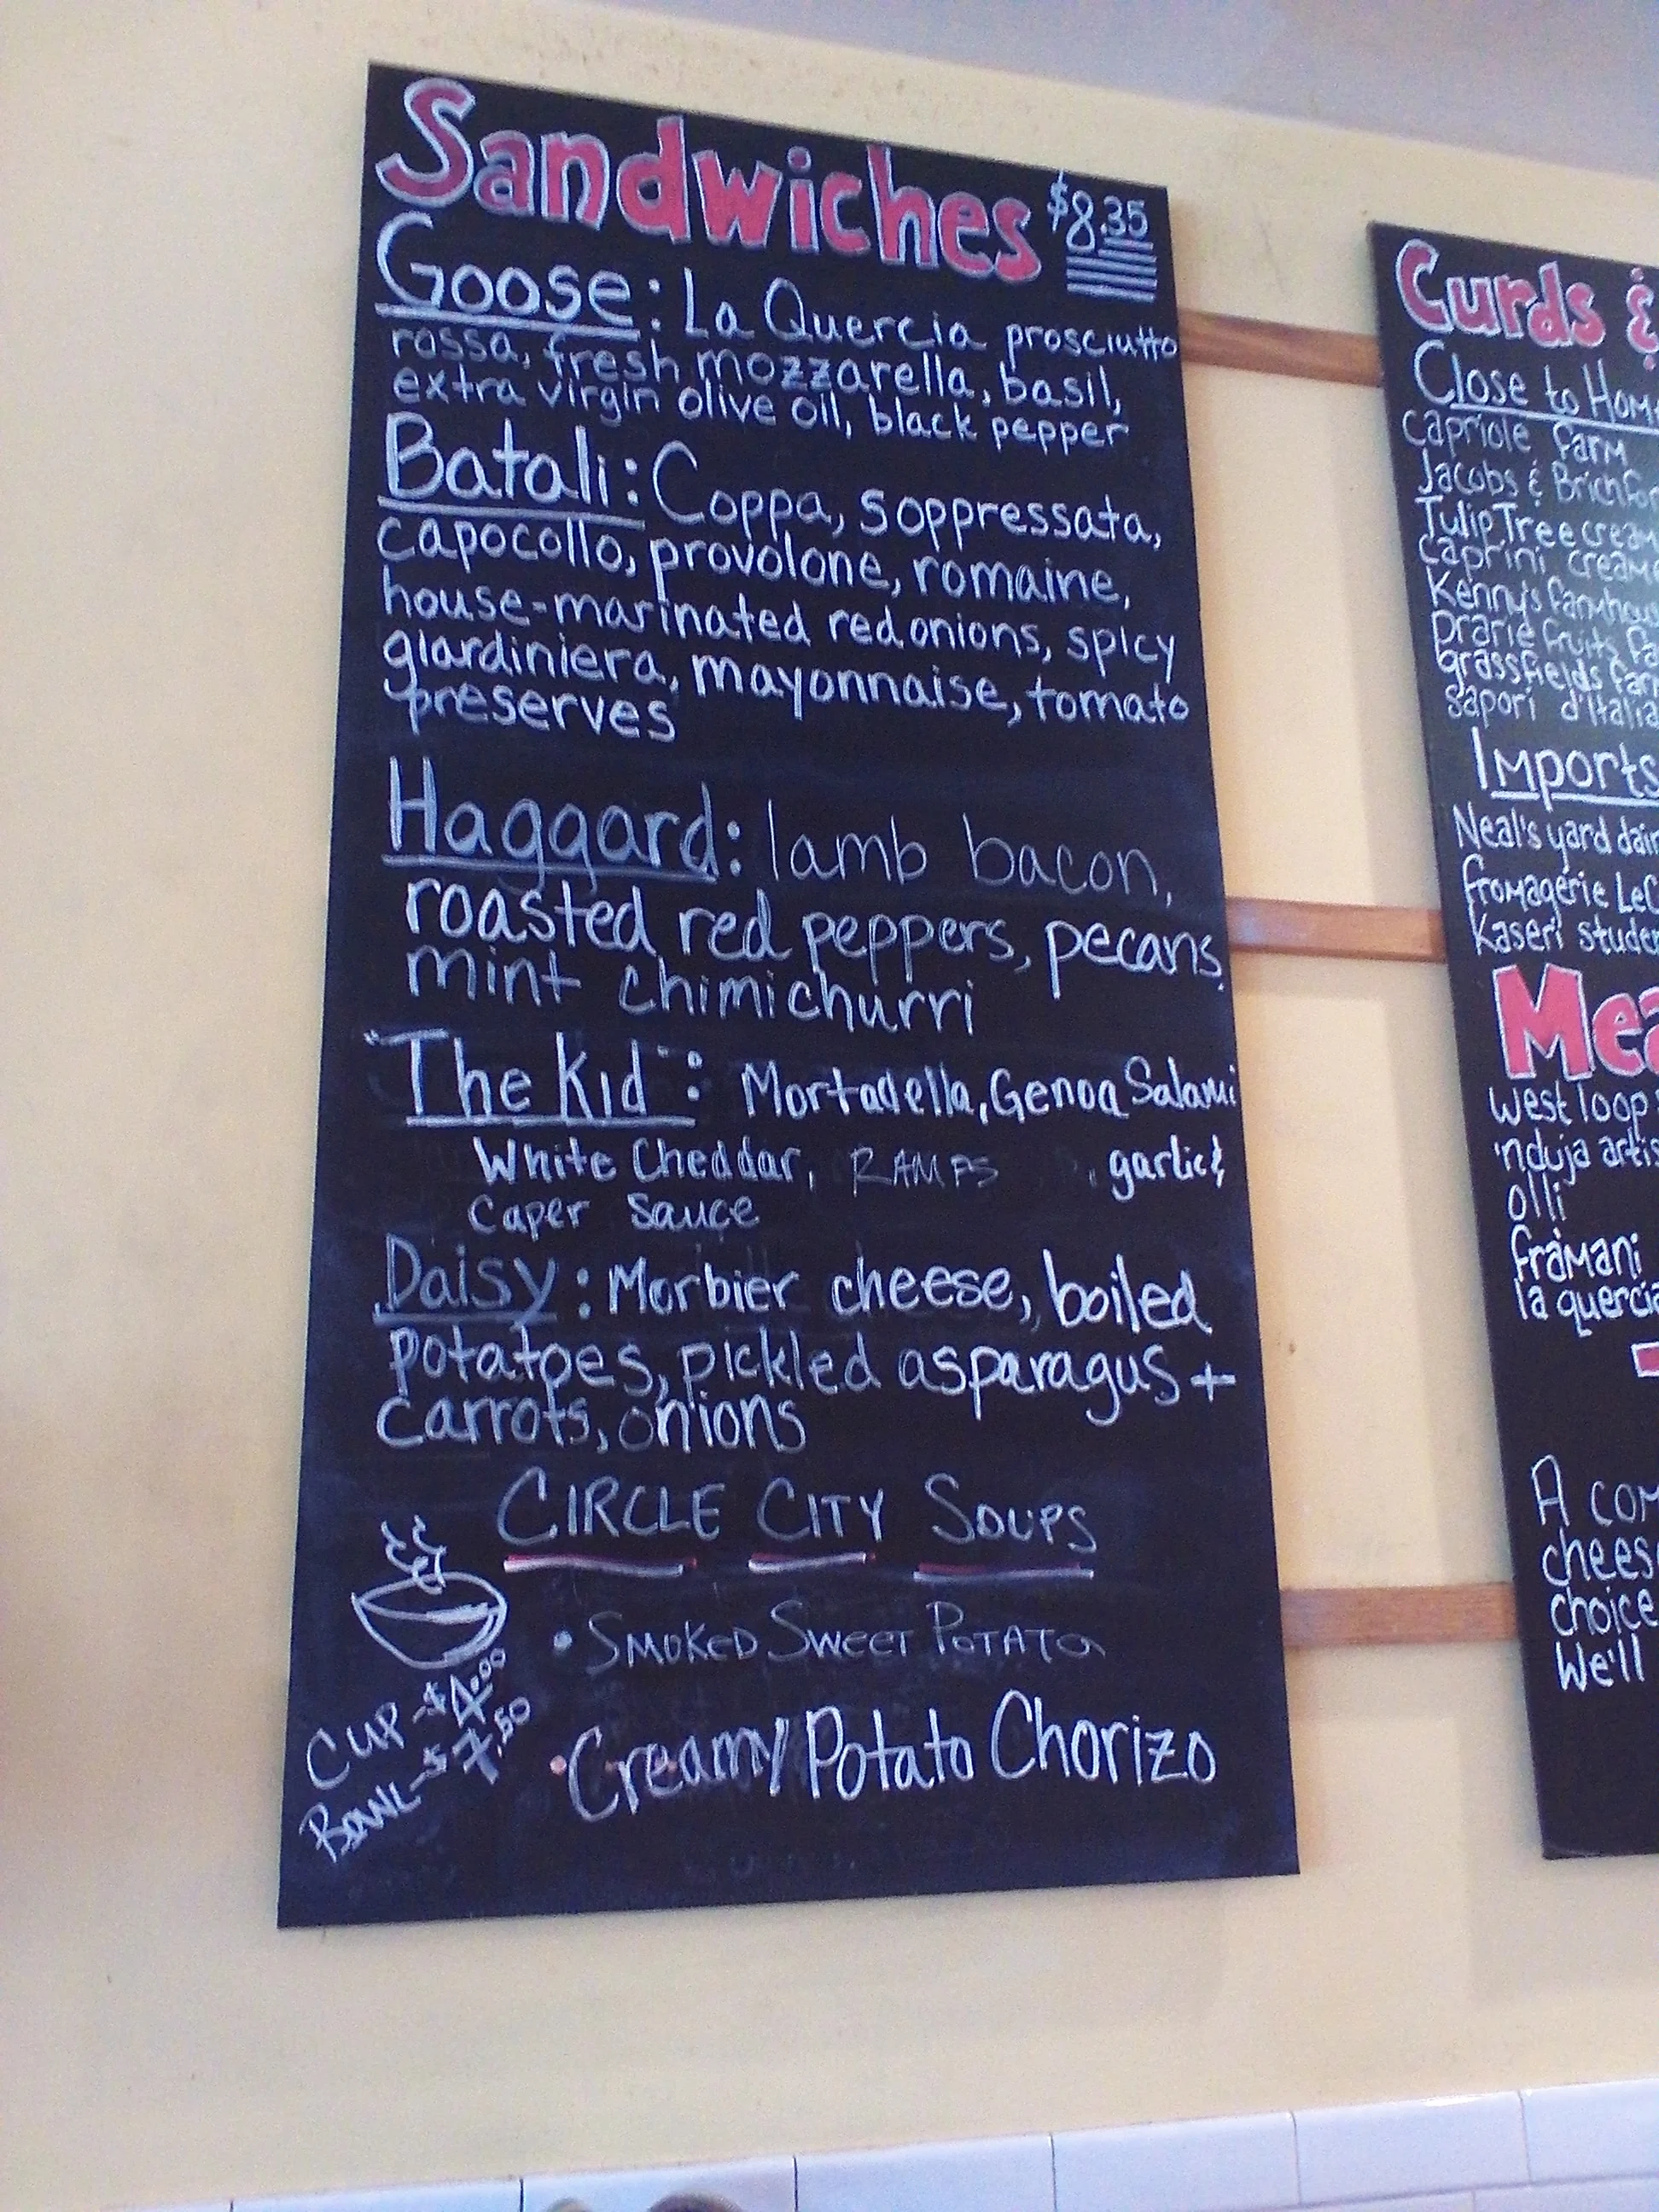 Sandwiches $8.35
Goose: La Quercia prosciutto
rossa, fresh mozzarella, basil,
extra virgin olive oil, black pepper
Batali: Coppa, soppressata,
capocollo, provolone, romaine,
house-marinated red onions, spicy
giardiniera, mayonnaise, tomato
preserves
Haggard: lamb bacon,
roasted red peppers, pecans,
mint chimichurri
"The Kid": Mortadella, Genoa Salami
White Cheddar, RAMPS , garlic &
Caper Sauce
Daisy: Morbier cheese, boiled
potatoes, pickled asparagus +
carrots, onions
CIRCLE CITY SOUPS
• SMOKED SWEET POTATO
• Creamy Potato Chorizo
CUP - $4.00
BOWL - $7.50
Curds &
Close to Home
capriole farm
Jacobs & Brichfor
Tulip Tree cream
caprini creame
Kenny's farmhous
prarie fruits fa
grassfields farm
sapori d'Italia
Imports
Neal's yard dair
fromagerie LeC
Kaseri studen
Mea
west loop s
'nduja artis
olli
framani
la quercia
A com
cheese
choice
We'll